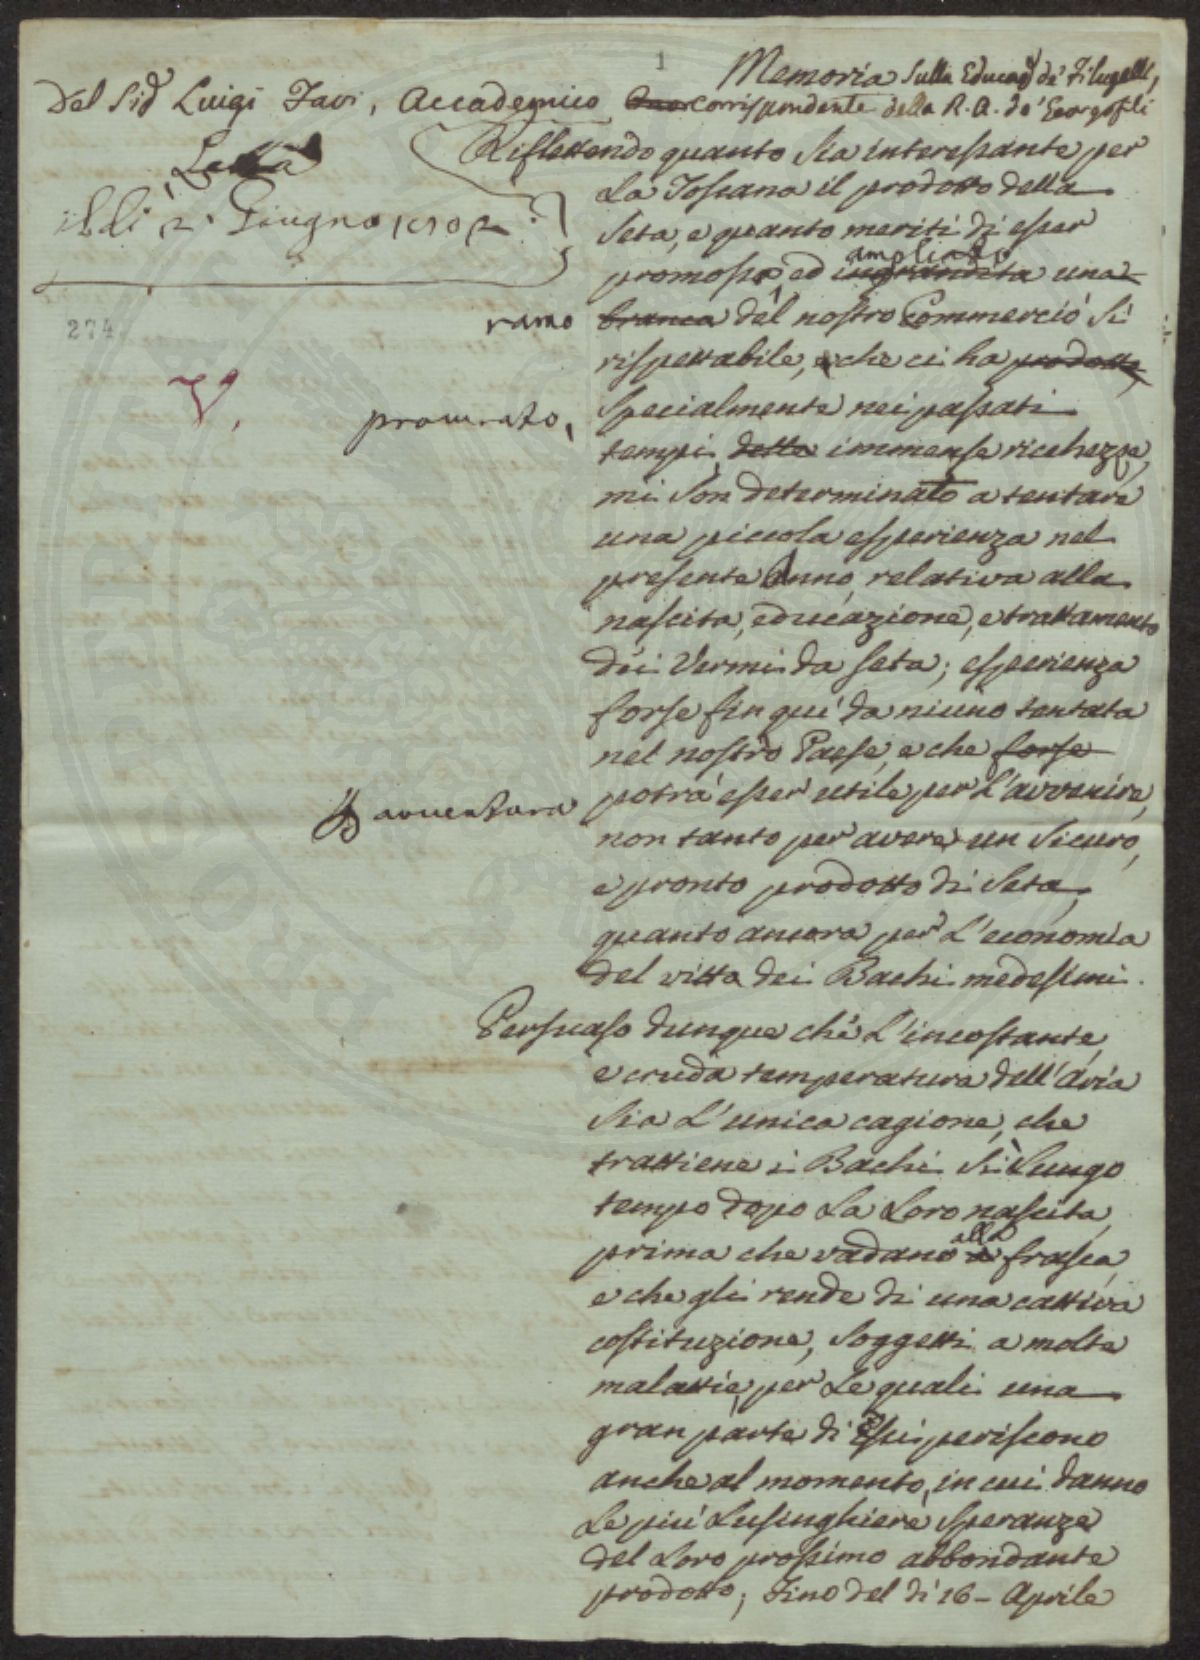 1
Memoria sulla Educaze de' Filugelli,
Del Sigr Luigi Tavi, Accademico Corrispondente della R. A. de' Georgofili
Letta
il dì 2. Giugno 1802.
274
V.
Riflettendo quanto sia interessante per
La Toscana il prodotto della
Seta, e quanto meriti di esser
promosso, ed ingrandita ampliato una
ramo branca del nostro Commercio sì
rispettabile, e che ci ha prodotte,
procurato, specialmente nei passati
tempi delle immense ricchezze,
mi son determinato a tentare
una piccola esperienza nel
presente Anno, relativa alla
nascita, educazione, e trattamento
dei Vermi da seta; esperienza
forse fin quì da niuno tentata
nel nostro Paese, e che forse
Per avventura potrà esser utile per L'avvenire,
non tanto per avere un sicuro,
e pronto prodotto di Seta,
quanto ancora per L'economia
del vitto dei Bachi medesimi.
Persuaso dunque che L'incostante,
e cruda temperatura dell'aria
sia L'unica cagione, che
trattiene i Bachi sì Lungo
tempo dopo La Loro nascita,
prima che vadano a alla frasca,
e che gli rende di una cattiva
costituzione, soggetti a molte
malattie, per Le quali una
gran parte di Essi periscono
anche al momento, in cui danno
Le più Lusinghiere speranze
del Loro prossimo abbondante
prodotto; Fino del dì 16- Aprile